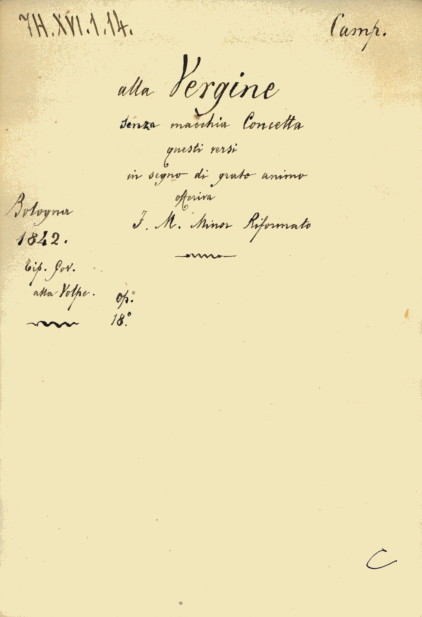 7H.XVI.1.14.
Camp.
alla Vergine
senza macchia Concetta
questi versi
in segno di grato animo
offeriva
F. M. Minor Riformato
Bologna
1842.
Tip. Gov.
alla Volpe.
op.°
18.°
C